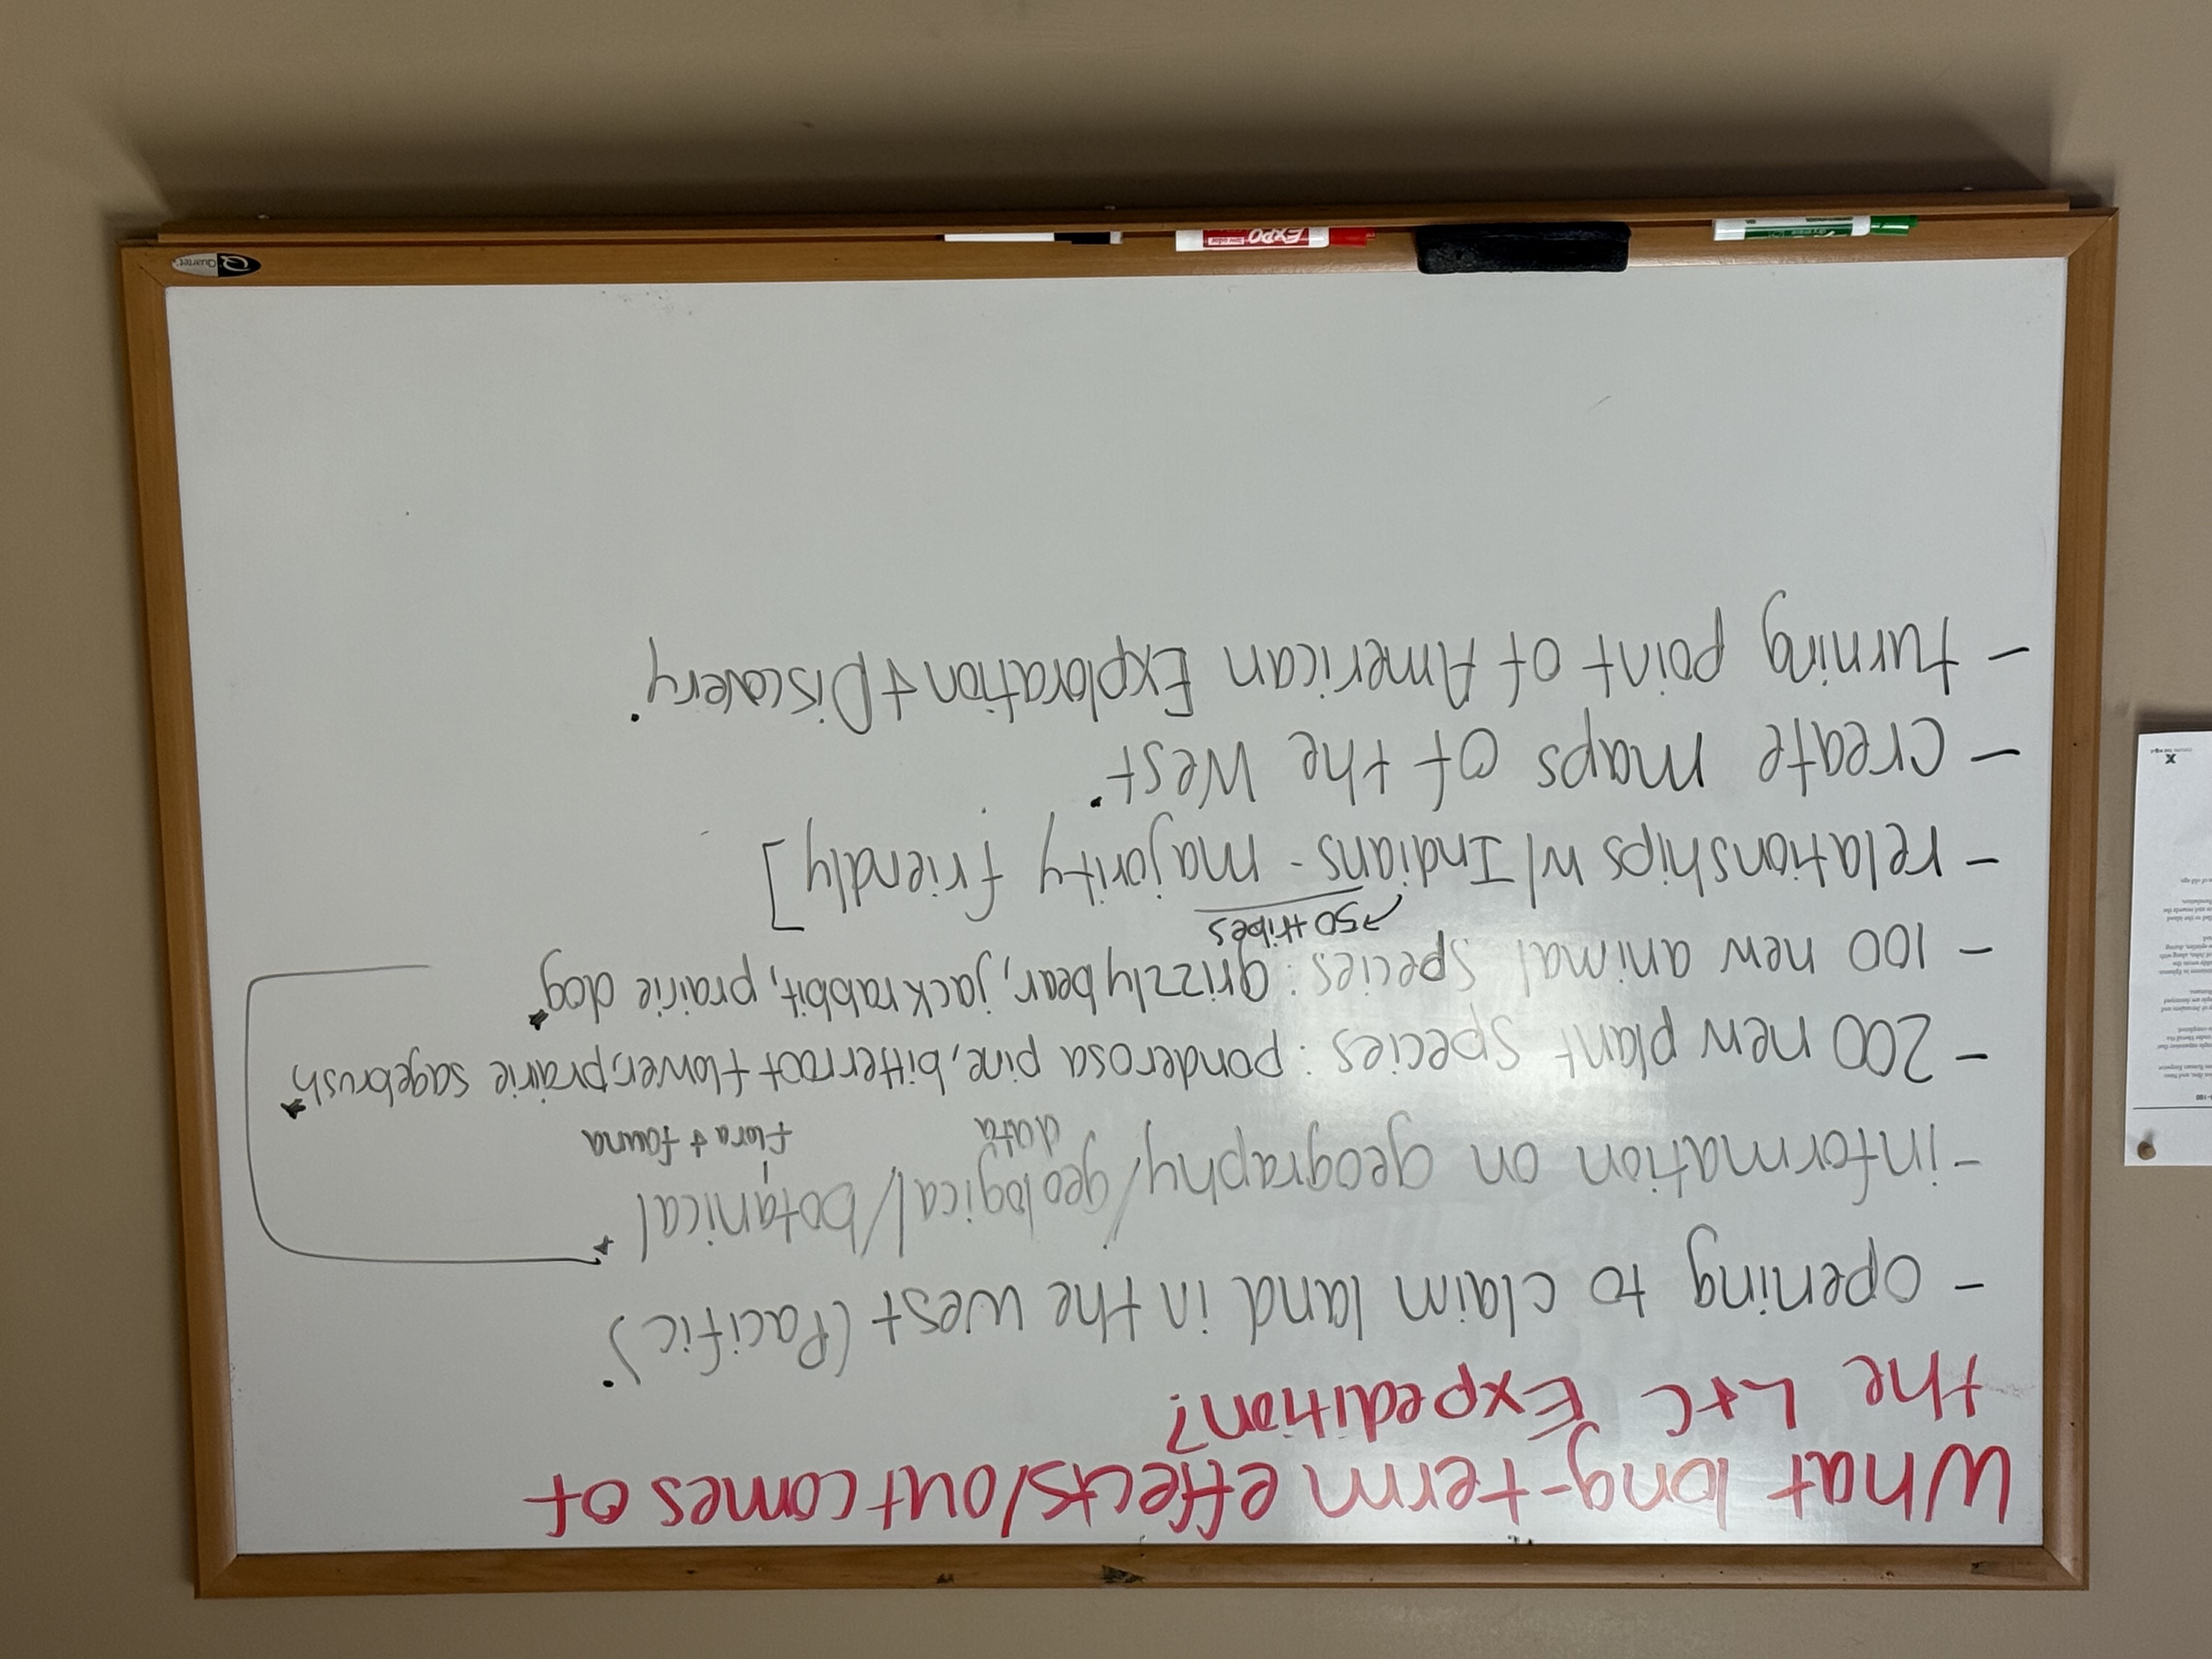 What long-term effects/outcomes of
the L+C Expedition?
- opening to claim land in the west (Pacific)
- information on geography/geological/botanical
data
flora & fauna
- 200 new plant species: ponderosa pine, bitterroot flower, prairie sagebrush
- 100 new animal species: grizzly bear, jack rabbit, prairie dog
→50 tribes
- relationships w/ Indians - majority friendly]
- create maps of the West
- turning point of American Exploration & Discovery
EXPO
low odor
Quartet